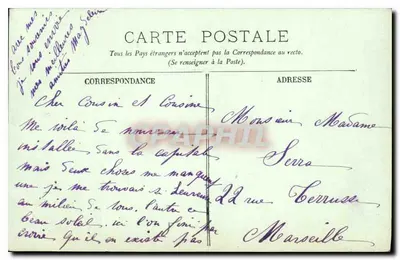 avec mes
bons souvenirs
je vous envoie
mes meilleures
amitiés Magdeleine
CARTE POSTALE
Tous les Pays étrangers n'acceptent pas la Correspondance au recto.
(Se renseigner à la Poste).
CORRESPONDANCE
Cher Cousin et Cousine
Me voilà de nouveau
installée dans la capitale
mais deux choses me manquent
une je me trouvais si heureuse
au milieu de vous, l'autre ce
beau soleil, ici l'on finit par
croire qu'il n'existe pas
ADRESSE
Monsieur Madame
Serra
22 rue Terrusse
Marseille